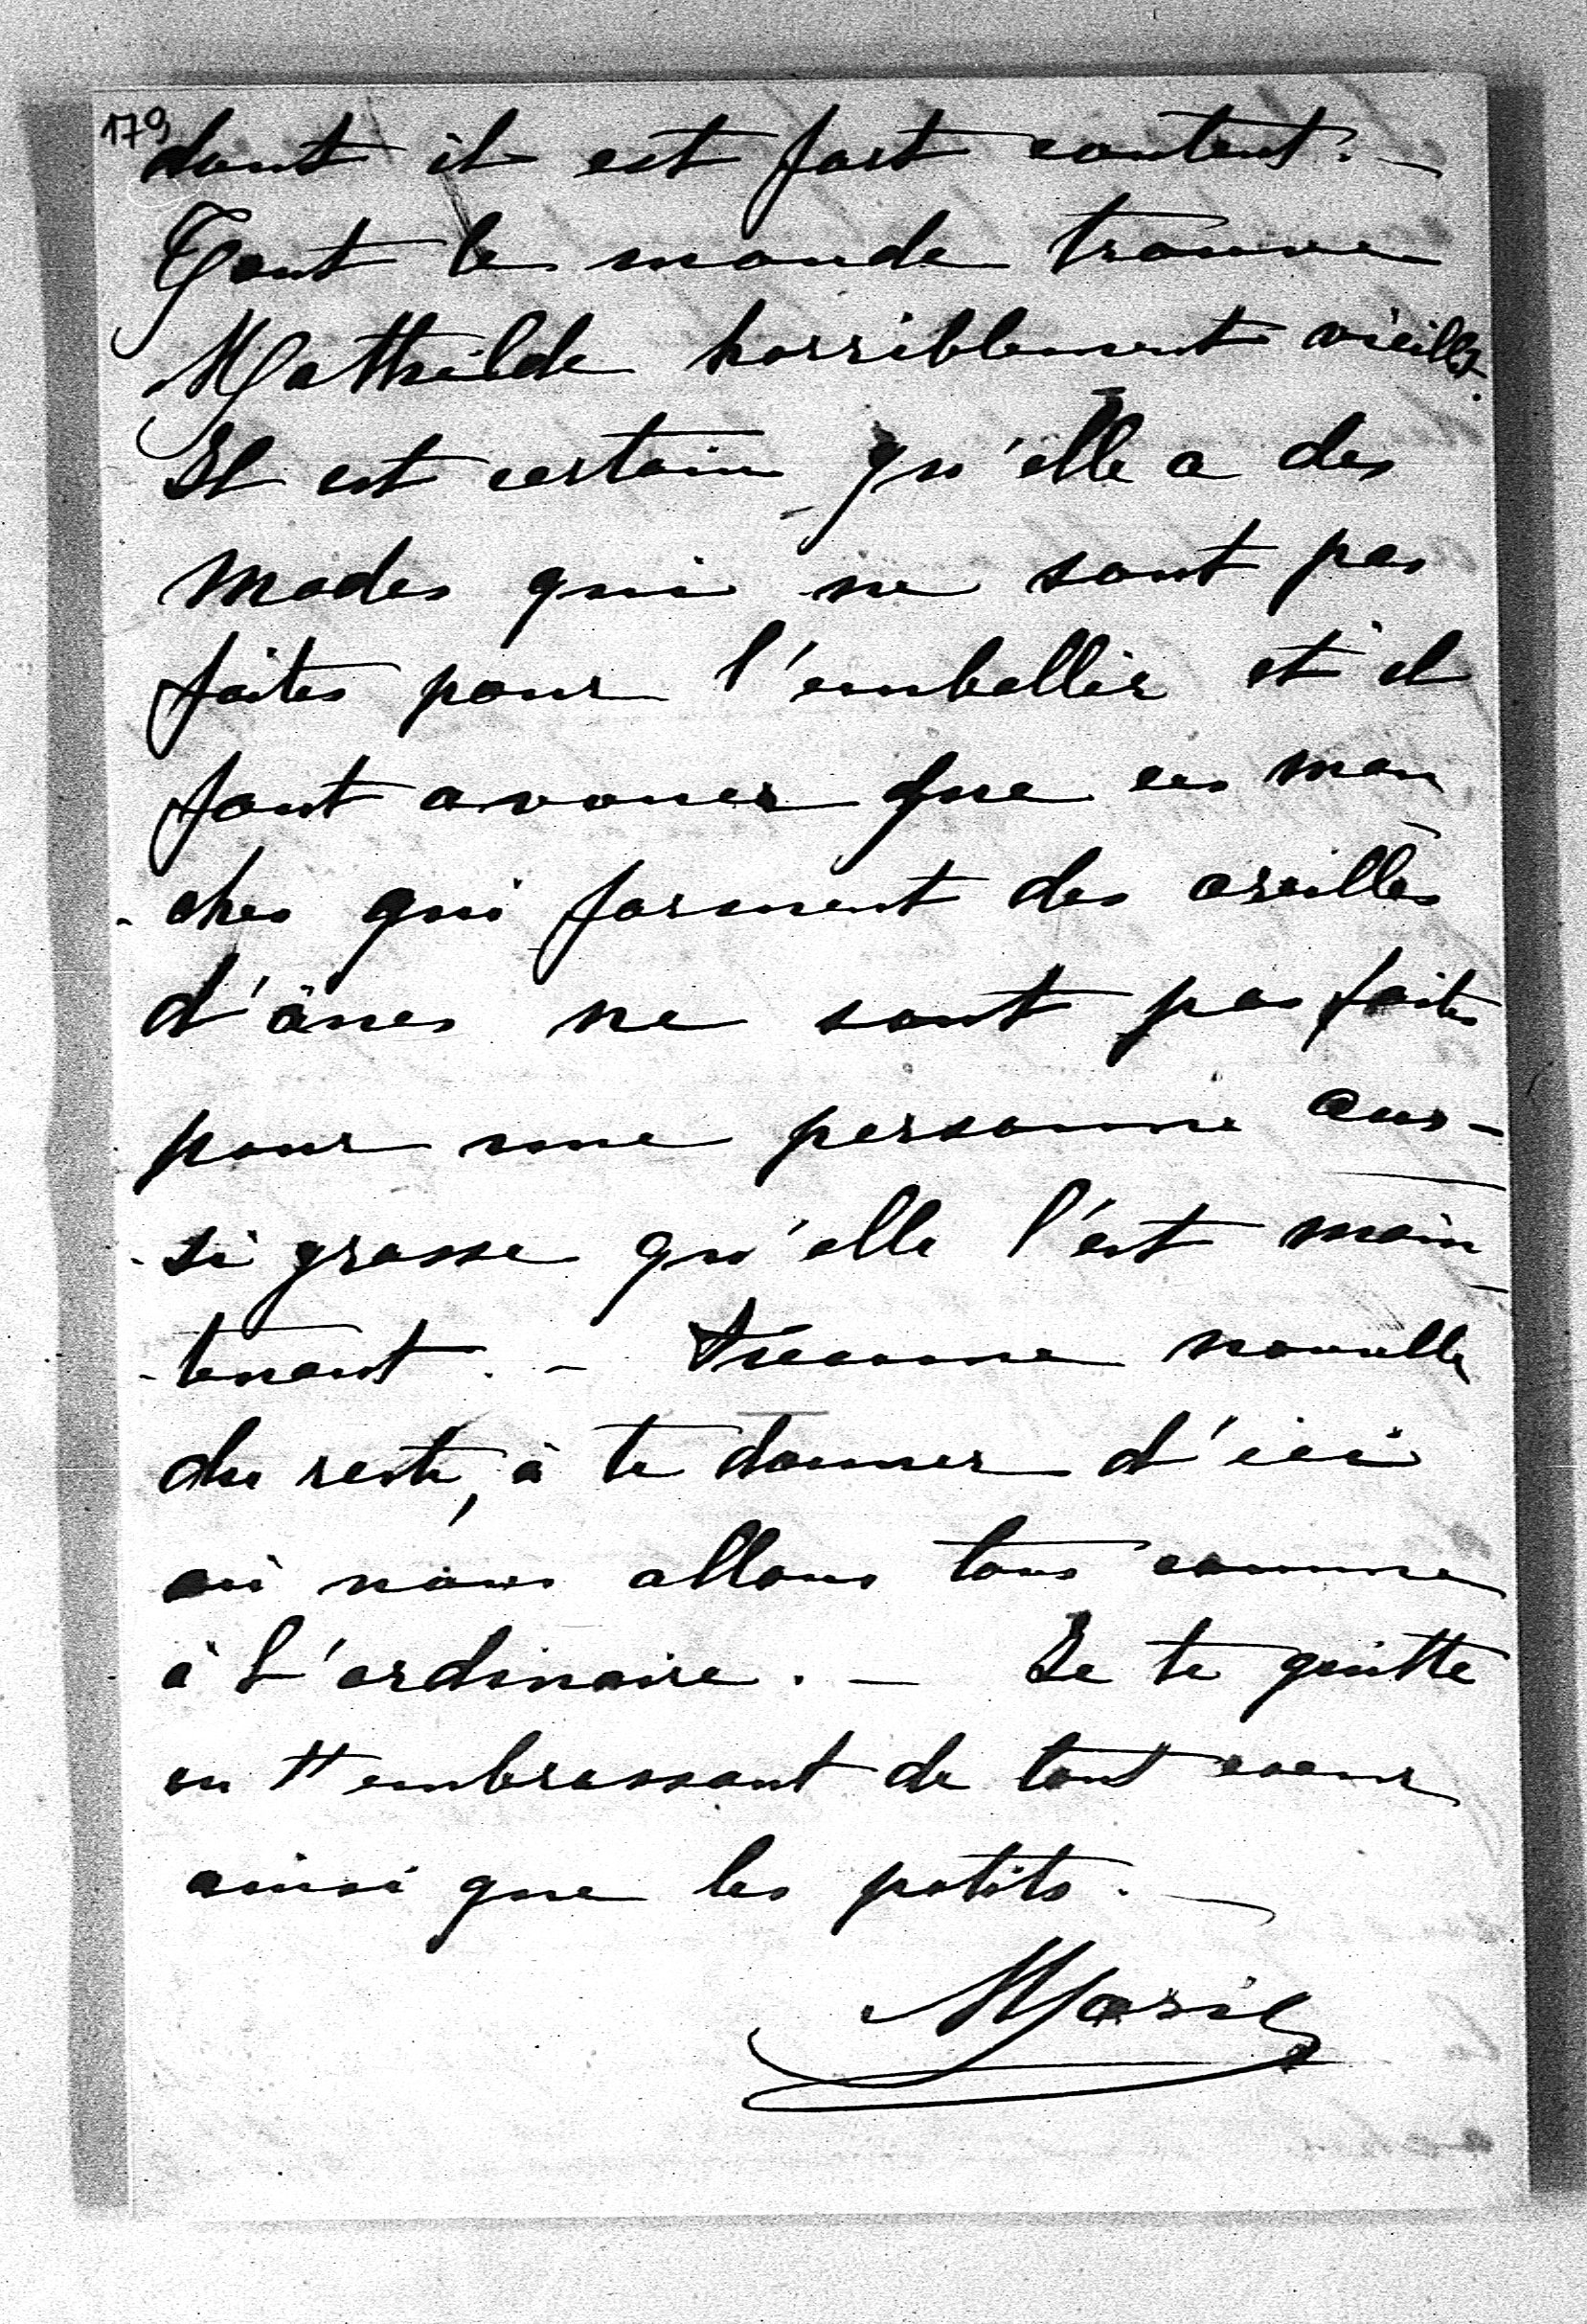 179
dont il est fort content. —
Tout le monde trouve
Mathilde horriblement vieille.
Il est certain qu'elle a des
modes qui ne sont pas
faites pour l'embellir et il
faut avouer que ces man
-ches qui forment des oreilles
d'ânes ne sont pas faites
pour une personne aus-
-si grasse qu'elle l'est main-
-tenant. — Aucune nouvelle
du reste, à te donner d'ici
où nous allons tous comme
à l'ordinaire. — Je te quitte
en t'embrassant de tout coeur
ainsi que les petits. —
Marie